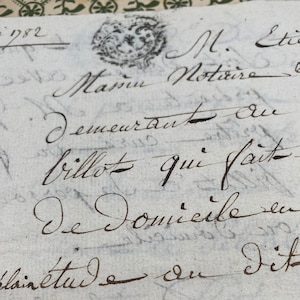 1782
M. Eti
Massin Notaire
demeurant au
billot qui fait
de domicile en
plain étude au dit